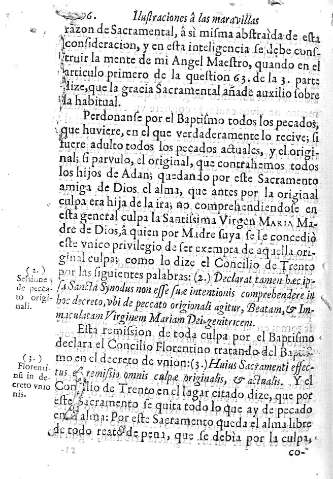 6. Ilustraciones â las maravillas
razon de Sacramental, â si misma abstraìda de esta
consideracion, y en esta inteligencia se debe cons-
truir la mente de mi Angel Maestro, quando en el
articulo primero de la question 63. de la 3. parte
dize, que la gracia Sacramental añade auxilio sobre
la habitual.
Perdonanse por el Baptismo todos los pecados,
que huviere, en el que verdaderamente lo recive; si
fuere adulto todos los pecados actuales, y el origi-
nal; si parvulo, el original, que contrahemos todos
los hijos de Adan; quedando por este Sacramento
amiga de Dios el alma, que antes por la original
culpa era hija de la ira; no comprehendiendose en
esta general culpa la Santissima Virgen MARIA Ma-
dre de Dios, â quien por Madre suya se le concediò
este vnico privilegio de ser exempta de aquella ori-
ginal culpa; como lo dize el Concilio de Trento
por las siguientes palabras: (2.) Declarat tamen hæc ip-
sa Sancta Synodus non esse suæ intentionis comprehendere in
hoc decreto, vbi de peccato originali agitur, Beatam, & Im-
maculatam Virginem Mariam Dei-genitricem.
(2.)
de pecca-
to origi-
nali.
Esta remission de toda culpa por el Baptismo
declara el Concilio Florentino tratando del Baptis-
mo en el decreto de vnion: (3.) Huius Sacramenti effec-
tus est remissio omnis culpæ originalis, & actualis. Y el
Concilio de Trento en el lugar citado dize, que por
este Sacramento se quita todo lo que ay de pecado
en el alma: Por este Sacramento queda el alma libre
de todo reato de pena, que se debia por la culpa,
(3.)
Florenti-
nũ in de-
creto vnio
nis.
co-